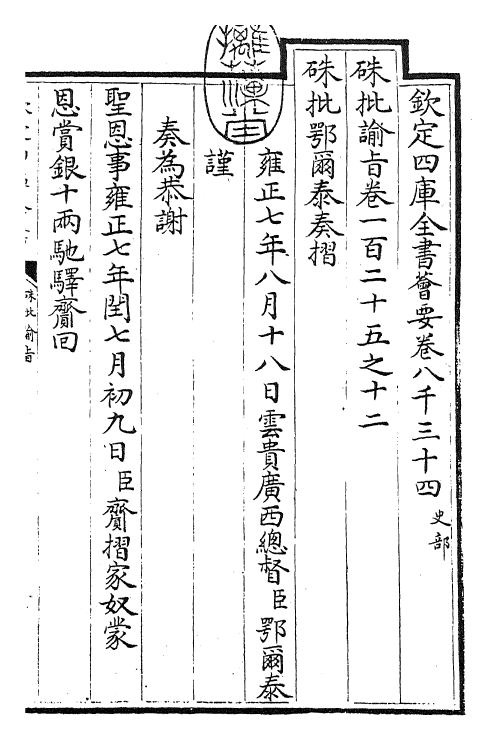 欽定四庫全書薈要卷八千三十四 史部
硃批諭旨卷一百二十五之十二
硃批鄂爾泰奏摺
雍正七年八月十八日雲貴廣西總督臣鄂爾泰
謹
奏為恭謝
聖恩事雍正七年閏七月初九日臣齎摺家奴蒙
恩賞銀十兩馳驛齎回
硃批諭旨